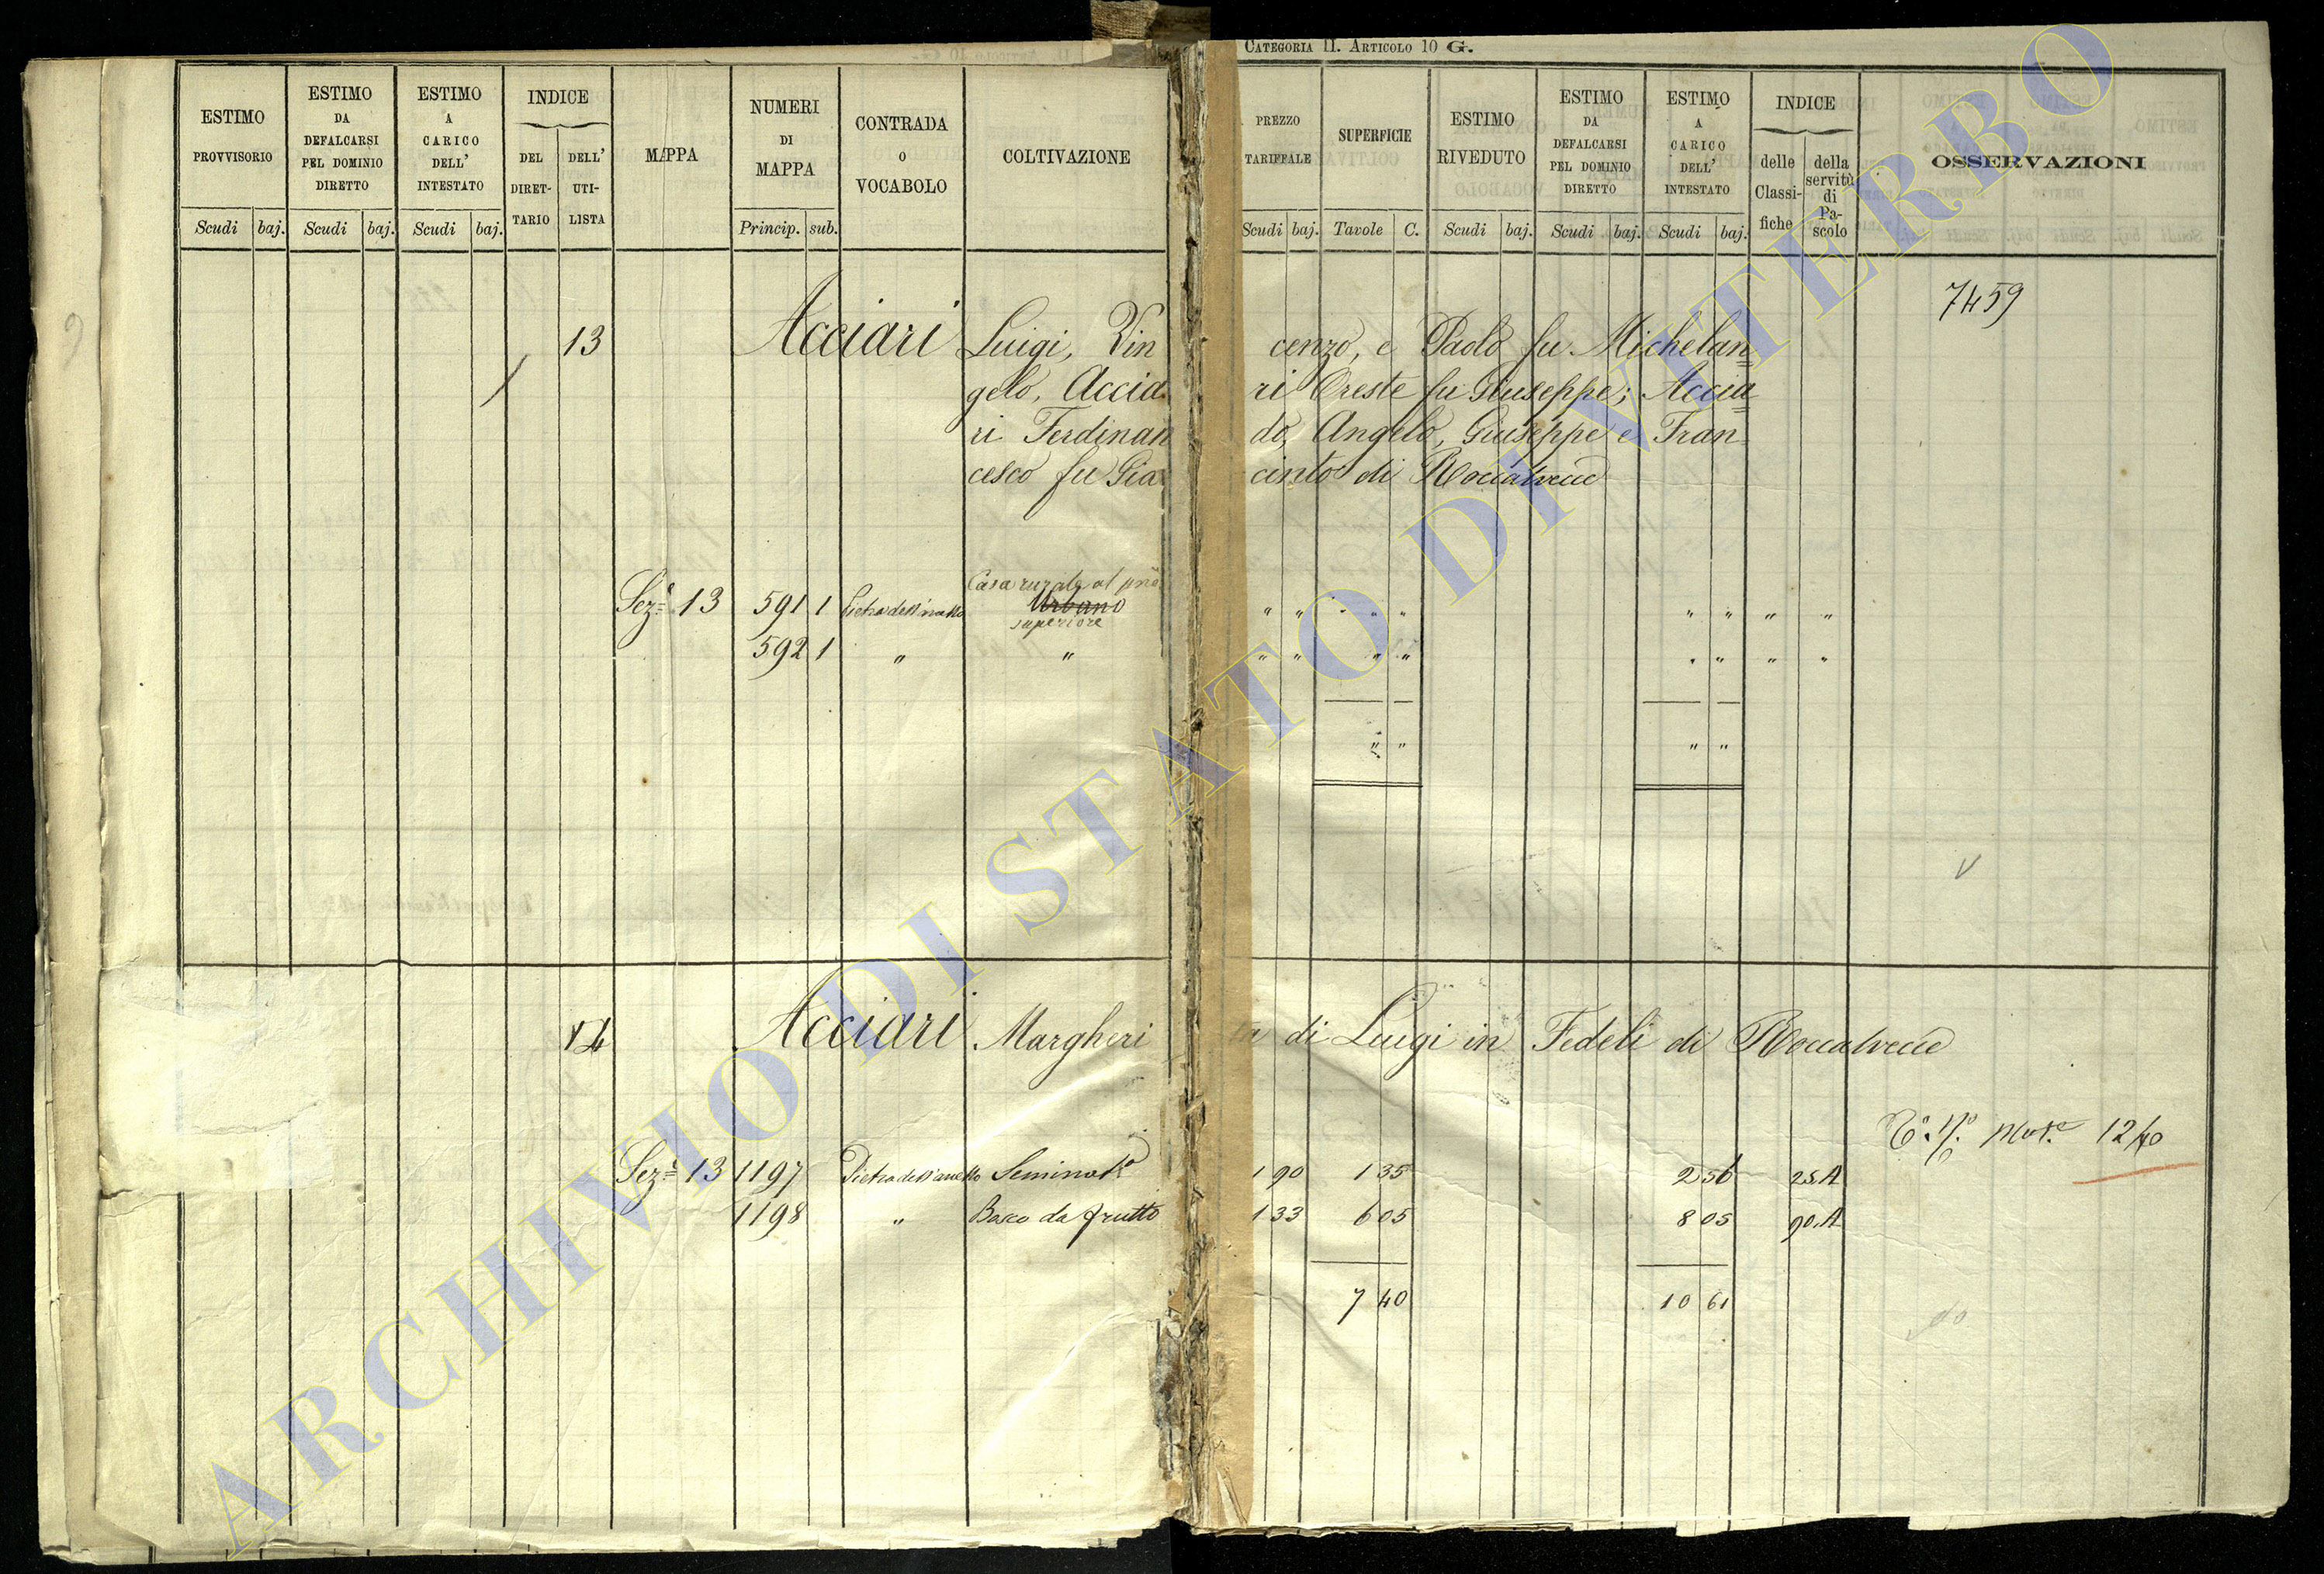 CATEGORIA II. ARTICOLO 10 G.
ESTIMO PROVVISORIO
ESTIMO DA DEFALCARSI PEL DOMINIO DIRETTO
ESTIMO A CARICO DELL' INTESTATO
INDICE
DEL DIRET-TARIO
DELL' UTI-LISTA
MAPPA
NUMERI DI MAPPA
CONTRADA O VOCABOLO
COLTIVAZIONE
PREZZO TARIFFALE
SUPERFICIE
ESTIMO RIVEDUTO
ESTIMO DA DEFALCARSI PEL DOMINIO DIRETTO
ESTIMO A CARICO DELL' INTESTATO
INDICE
delle Classi-fiche
della servitù di Pa-scolo
OSSERVAZIONI
Scudi baj. Scudi baj. Scudi baj. Princip. sub. Scudi baj. Tavole C. Scudi baj. Scudi baj. Scudi baj.
7459
13 Acciari Luigi, Vin cenzo, e Paolo fu Michelan=
gelo, Accia ri Oreste fu Giuseppe; Accia=
ri Ferdinan do, Angelo, Giuseppe e Fran
cesco fu Gia cinto di Roccalvecce
Casa rurale al
Sez.e 13 591 1 Pietra dell'anello Urbano " " " " " " " " "
superiore
592 1 " " " " " " " " " "
" " " "
14 Acciari Margheri ta di Luigi in Fedeli di Roccalvecce
1240
Sez.e 13 1197 Pietra dell'anello Seminat.o 1 90 1 35 2 56 25.A
1198 " Bosco da frutto 1 33 6 05 8 05 90.A
7 40 10 61
ARCHIVIO DI STATO DI VITERBO